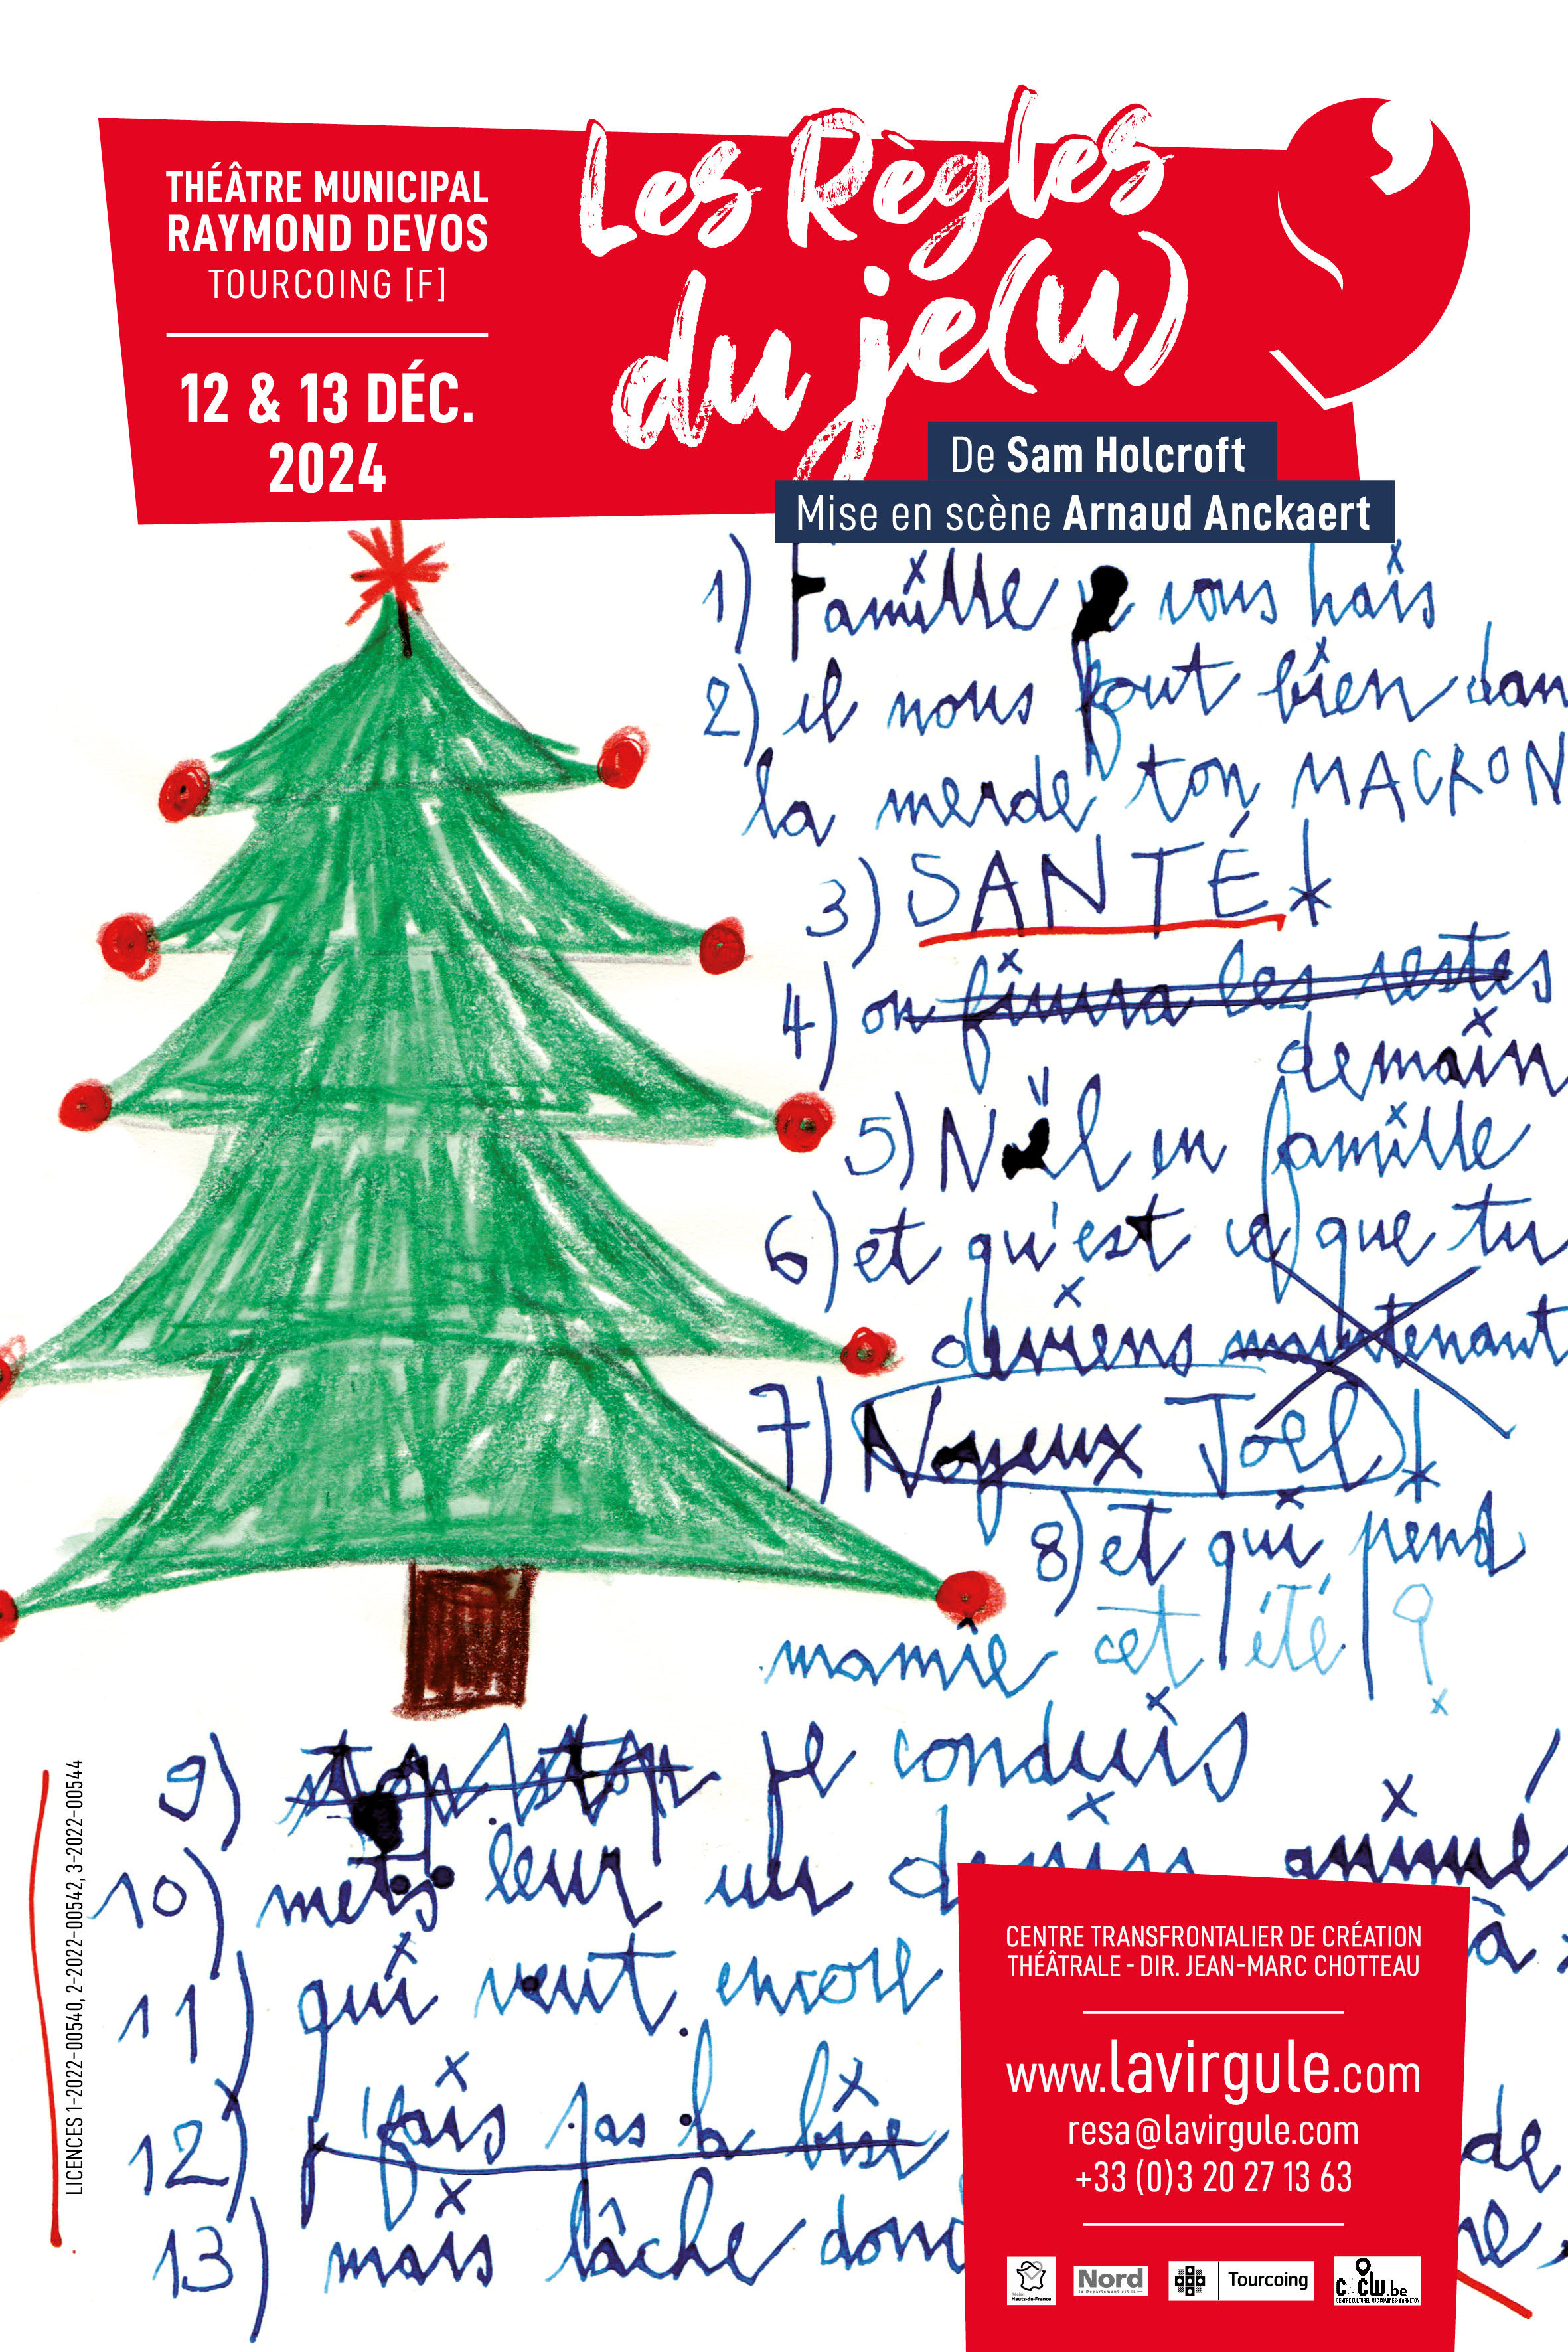 THÉÂTRE MUNICIPAL
RAYMOND DEVOS
TOURCOING [F]
12 & 13 DÉC.
2024
Les Règles
du je(u)
De Sam Holcroft
Mise en scène Arnaud Anckaert
1) Famille je vous hais
2) il nous fout bien dan
la merde ton MACRON
3) SANTÉ !
4) on finira les restes
demain
5) Noël en famille
6) et qu'est ce que tu
deviens maintenant
7) Noyeux Joël !
8) et qui prend
mamie cet été ?
9) stop stop je conduis
10) mets leur un dessin animé
11) qui veut encore
à
12) j'fais pas la bise
de
13) mais lâche donc
LICENCES 1-2022-00540, 2-2022-00542, 3-2022-00544
CENTRE TRANSFRONTALIER DE CRÉATION
THÉÂTRALE - DIR. JEAN-MARC CHOTTEAU
www.lavirgule.com
resa@lavirgule.com
+33 (0)3 20 27 13 63
Région
Hauts-de-France
Nord
le Département est là
Tourcoing
CCCW.be
CENTRE CULTUREL MJC COMINES-WARNETON